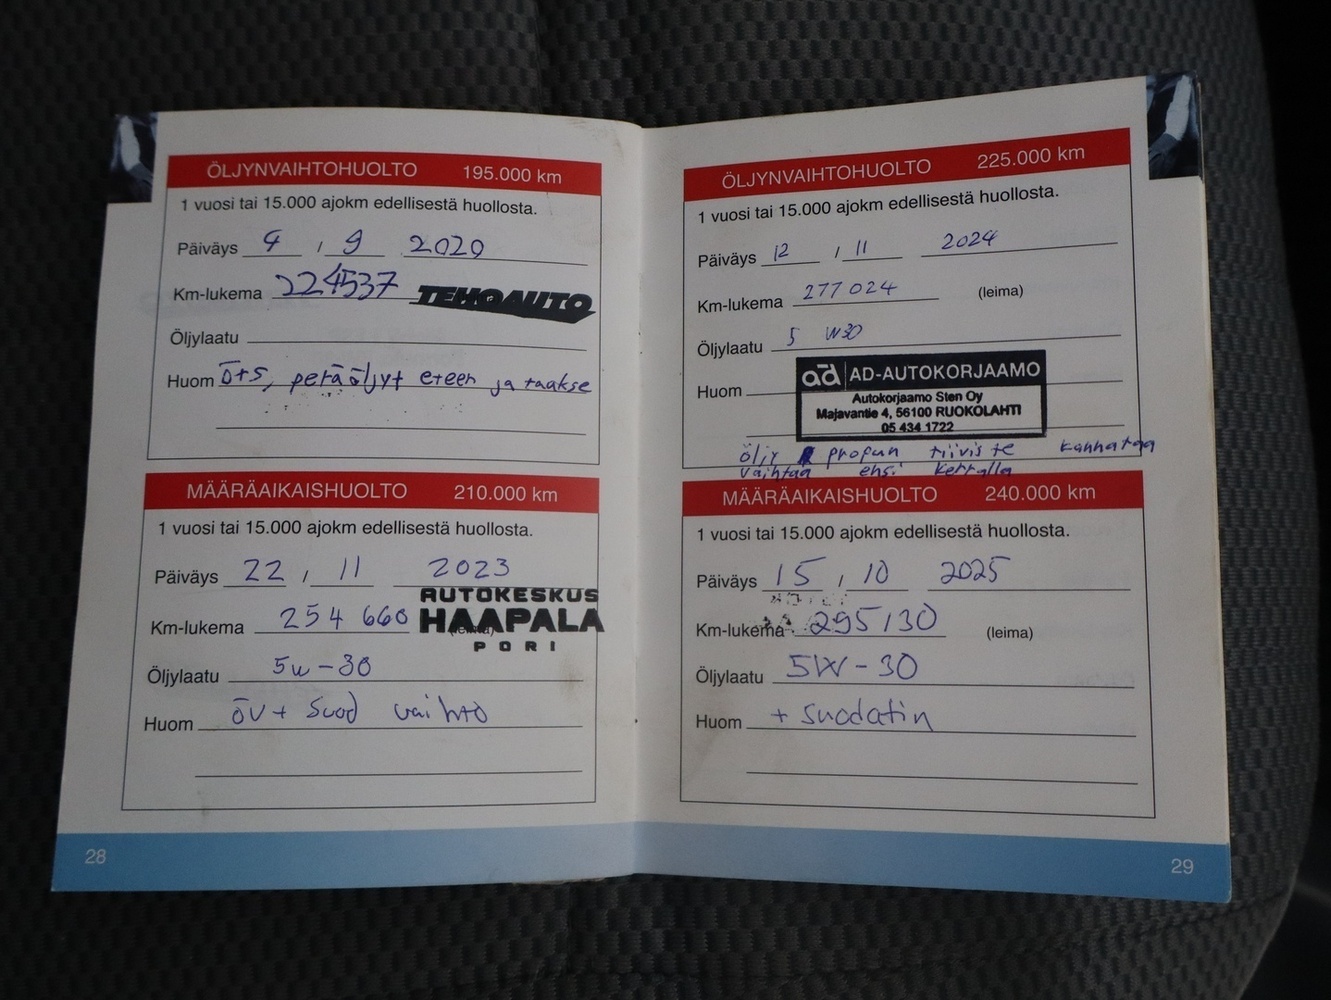 ÖLJYNVAIHTOHUOLTO 195.000 km
1 vuosi tai 15.000 ajokm edellisestä huollosta.
Päiväys 4 / 9 2020
Km-lukema 224537 TEHOAUTO
Öljylaatu
Huom ö+s, peräöljyt eteen ja taakse
MÄÄRÄAIKAISHUOLTO 210.000 km
1 vuosi tai 15.000 ajokm edellisestä huollosta.
Päiväys 22 / 11 2023
AUTOKESKUS
Km-lukema 254 660 HAAPALA
PORI
Öljylaatu 5w-30
Huom öv + Suod vaihto
28
ÖLJYNVAIHTOHUOLTO 225.000 km
1 vuosi tai 15.000 ajokm edellisestä huollosta.
Päiväys 12 / 11 2024
Km-lukema 277024 (leima)
Öljylaatu 5 W30
ad AD-AUTOKORJAAMO
Huom
Autokorjaamo Sten Oy
Majavantie 4, 56100 RUOKOLAHTI
05 434 1722
öljy propun tiiviste kannattaa
vaihtaa ensi kerralla
MÄÄRÄAIKAISHUOLTO 240.000 km
1 vuosi tai 15.000 ajokm edellisestä huollosta.
Päiväys 15 / 10 2025
Km-lukema 295130 (leima)
Öljylaatu 5W-30
Huom + suodatin
29